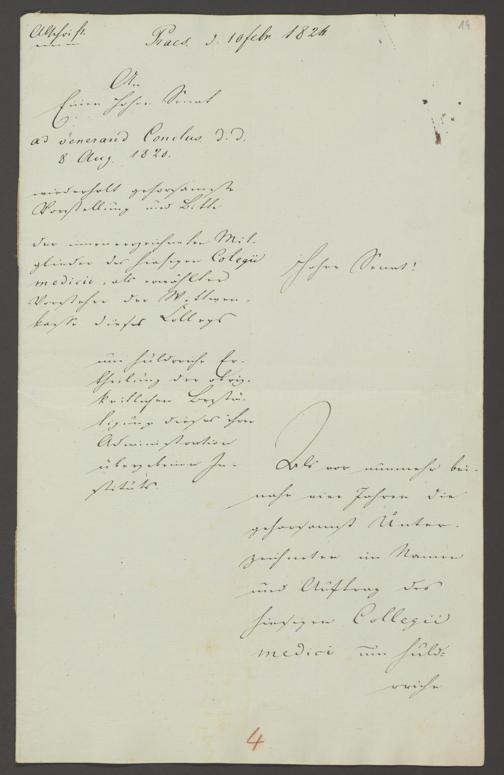 Abschrift.
Praes. d. 10 febr 1824
14
An
Einen Hohen Senat
ad venerand Conclus. d. d.
8 Aug. 1820.
wiederholt gehorsamste
Vorstellung und Bitte
der unterzeichneten Mit-
glieder des hiesigen Collegii
medici, als erwählter
Vorsteher der Wittwen-
kasse dieses Collegs
um huldreiche Er-
theilung der obrig-
keitlichen Bestä-
tigung dieses ihrer
Administration
übergebenen In-
stituts
Hoher Senat!
Als vor nunmehr bei-
nahe vier Jahren die
gehorsamst Unter-
zeichneten im Namen
und Auftrag des
hiesigen Collegii
medici um huld-
reiche
4